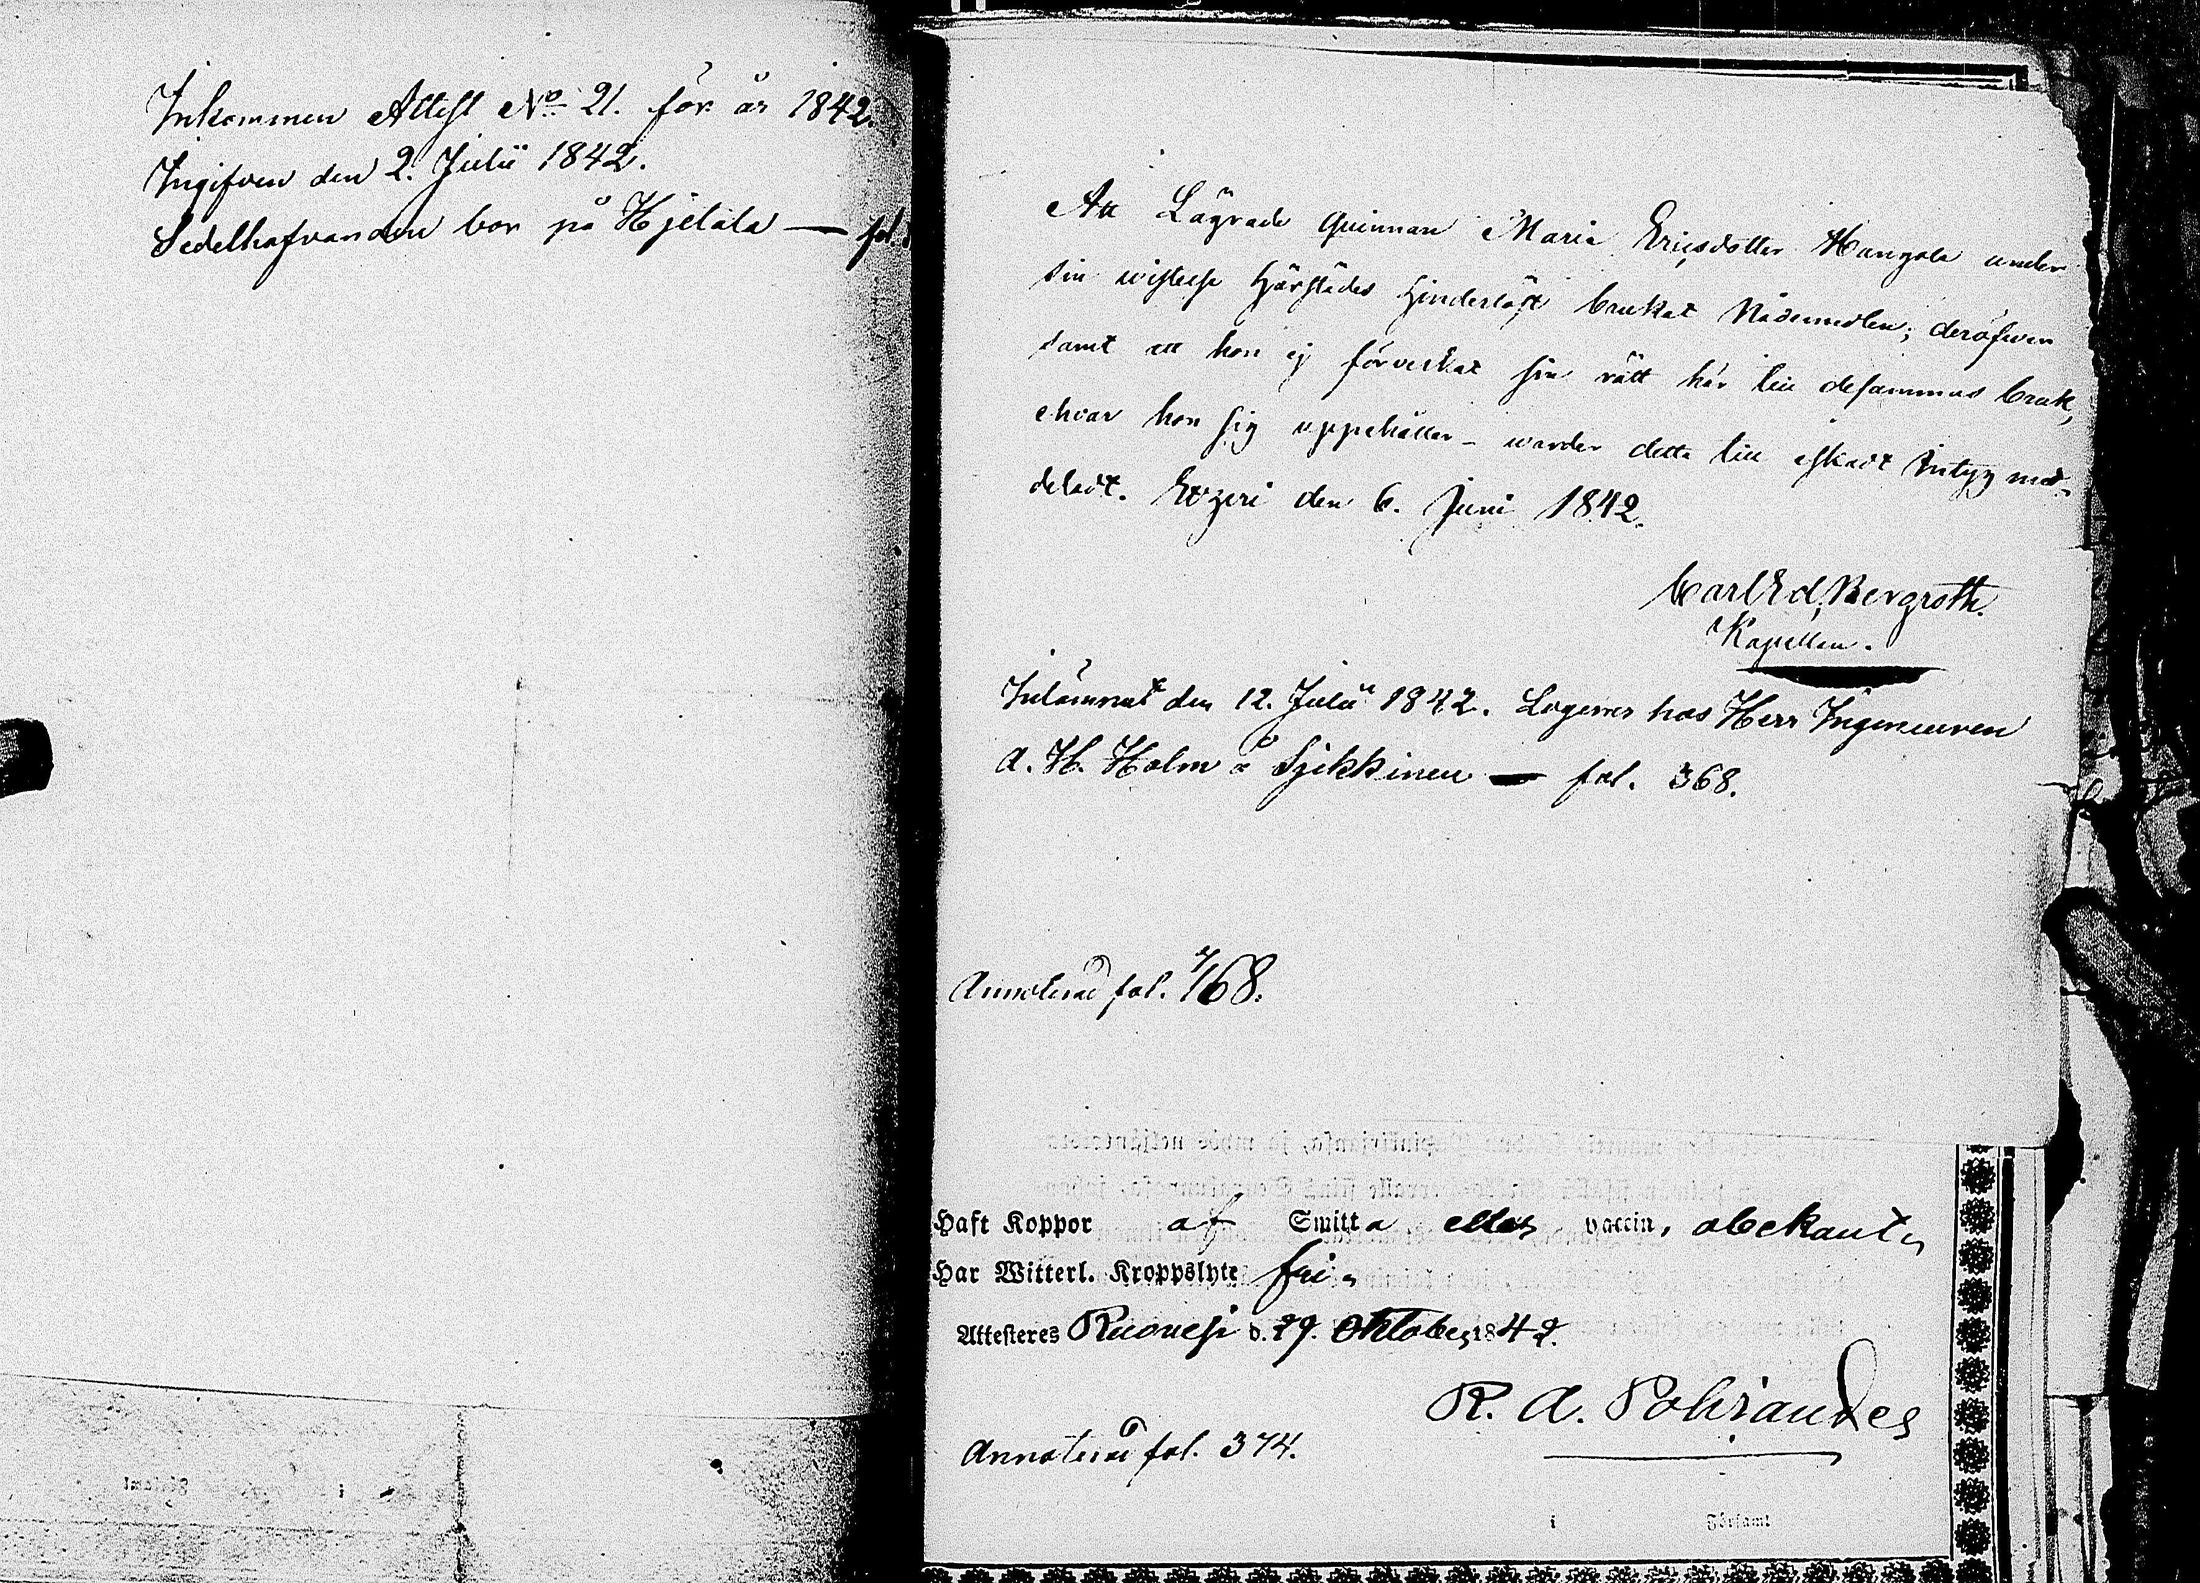 Inkommen Attest No 21. för år 1842.
Ingifven den 2. Julii 1842.
Sedelhafvanden bor på Hjelala — fol.
Att Lägrade Quinnan Maria Ericsdotter Hangola under
sin wistelse härstädes hinderlöst brukat Nådemedlen; deräfwen
samt att hon ej förverkat sin rätt här till desammas bruk,
ehvar hon sig uppehåller – warder detta till äskadt Intyg med-
deladt. Etzeri den 6. Juni 1842.
Carl Ed. Bergroth.
Kapellan.
Inlämnat den 12. Julii 1842. Logerar hos Herr Ingenieuren
A. H. Holm å Sjikkinen — fol. 368.
Annoterad fol. 168.
Haft Koppor af Smitta eller vaccin, obekant,
Har Witterl. Kroppslyte fri.
Attesteres Ruovesi d. 29. Oktober 1842.
R. A. Pohjander
Annoterad fol. 374.
i Församl